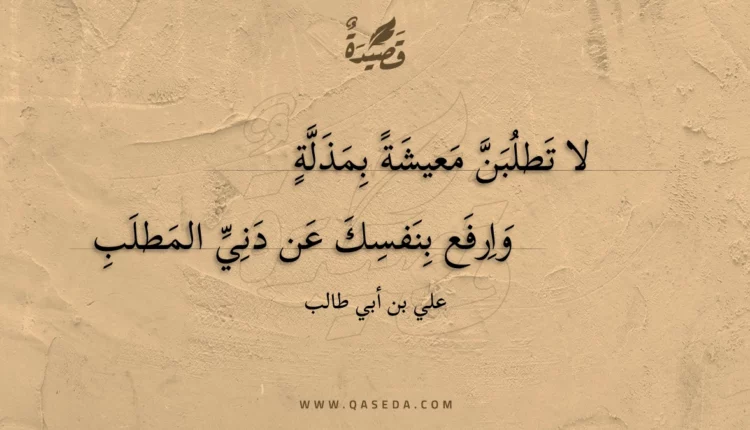 قَصِيْدَةٌ
لا تَطلُبَنَّ مَعيشَةً بِمَذَلَّةٍ
وَاِرفَع بِنَفسِكَ عَن دَنِيِّ المَطلَبِ
علي بن أبي طالب
WWW.QASEDA.COM